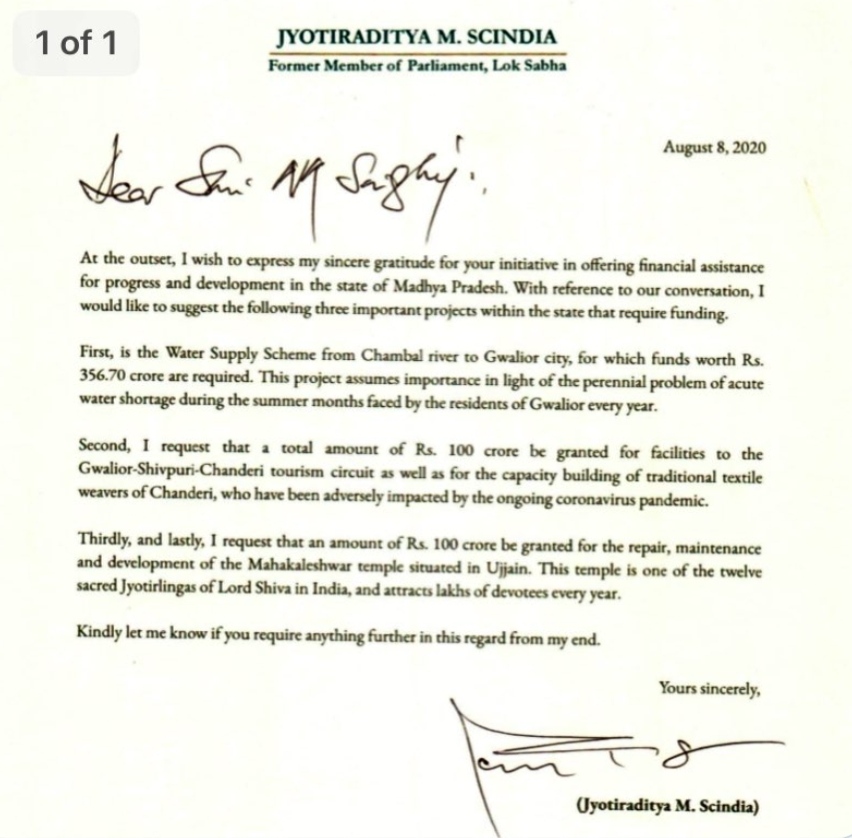 1 of 1
JYOTIRADITYA M. SCINDIA
Former Member of Parliament, Lok Sabha
August 8, 2020
Dear Shri NK Singhji,
At the outset, I wish to express my sincere gratitude for your initiative in offering financial assistance
for progress and development in the state of Madhya Pradesh. With reference to our conversation, I
would like to suggest the following three important projects within the state that require funding.
First, is the Water Supply Scheme from Chambal river to Gwalior city, for which funds worth Rs.
356.70 crore are required. This project assumes importance in light of the perennial problem of acute
water shortage during the summer months faced by the residents of Gwalior every year.
Second, I request that a total amount of Rs. 100 crore be granted for facilities to the
Gwalior-Shivpuri-Chanderi tourism circuit as well as for the capacity building of traditional textile
weavers of Chanderi, who have been adversely impacted by the ongoing coronavirus pandemic.
Thirdly, and lastly, I request that an amount of Rs. 100 crore be granted for the repair, maintenance
and development of the Mahakaleshwar temple situated in Ujjain. This temple is one of the twelve
sacred Jyotirlingas of Lord Shiva in India, and attracts lakhs of devotees every year.
Kindly let me know if you require anything further in this regard from my end.
Yours sincerely,
(Jyotiraditya M. Scindia)